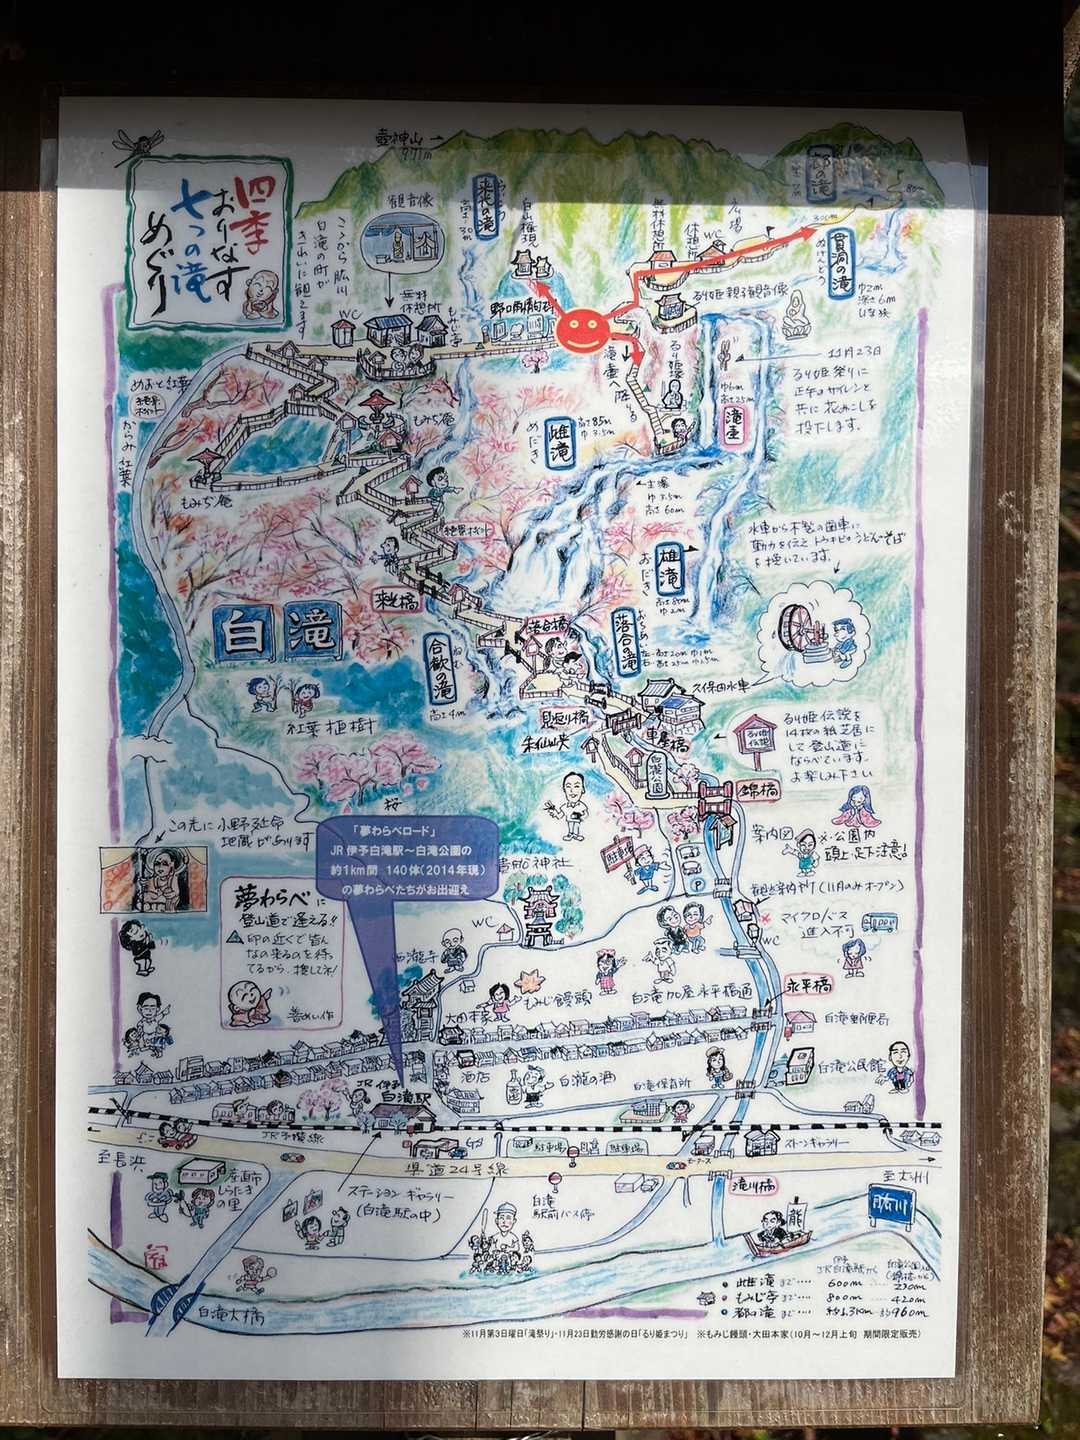 四季
おりなす
七つの滝
めぐり
壺神山
971m
観音像
ここから肱川
白滝の町が
きれいに観えます
高さ30m
白山権現
無料休憩所
WC
休憩所
広場
30cm
80m
貫洞の滝
ぬけどう
ゆ2m
深さ6m
WC
無料
休憩所
もみじ亭
るり姫親子観音像
滝壺へ降りる
ゆ6m
高さ25m
滝壺
11月23日
るり姫祭りに
正午のサイレンと
共に花みこしを
投下します。
めおと紅葉
からみ紅葉
もみぢ庵
もみぢ庵
雌滝
めだき
高さ85m
ゆ3.5m
主瀑
ゆ3.5m
高さ60m
雄滝
おだき
高さ80m
ゆ2m
水車から木製の歯車に
動力を伝えトウキビやうどん・そば
を挽いています。
白滝
合歓の滝
ねむ
高さ4m
落合の滝
おちあい
久保田水車
紅葉植樹
見返り橋
車屋橋
白瀧公園
錦橋
るり姫
伝説
るり姫伝説を
14枚の紙芝居に
して登山道に
ならべています。
お楽しみ下さい
桜
この先に小野延命
地蔵があります
「夢わらべロード」
JR伊予白滝駅～白滝公園の
約1km間 140体(2014年現)
の夢わらべたちがお出迎え
神社
駐車場
P
案内図
※公園内
頭上・足下注意!
観光案内所(11月のみオープン)
マイクロバス
進入不可
夢わらべに
登山道で逢える!!
印の近くで皆ん
なの来るのを待っ
てるから、捜してネ!
WC
WC
もみじ饅頭
大田本家
白滝加屋永平橋通
永平橋
白滝郵便局
酒店
白瀧の酒
白滝保育所
白滝公民館
JR伊予
白滝駅
JR予讃線
GS
駐車場
駐車場
ストーンギャラリー
至長浜
県道24号線
至大洲
産直市
しらたき
の里
ステーションギャラリー
(白滝駅の中)
白滝
駅前バス停
滝川橋
龍
肱川
白滝大橋
伊予
JR白滝駅から
白滝公園
(錦橋から)
雌滝まで‥‥ 600m ‥‥ 230m
もみじ亭まで‥‥ 800m ‥‥ 420m
まで‥‥ 約1.3Km 960m
※11月第3日曜日「滝祭り」・11月23日勤労感謝の日「るり姫まつり」 ※もみじ饅頭・大田本家(10月～12月上旬 期間限定販売)